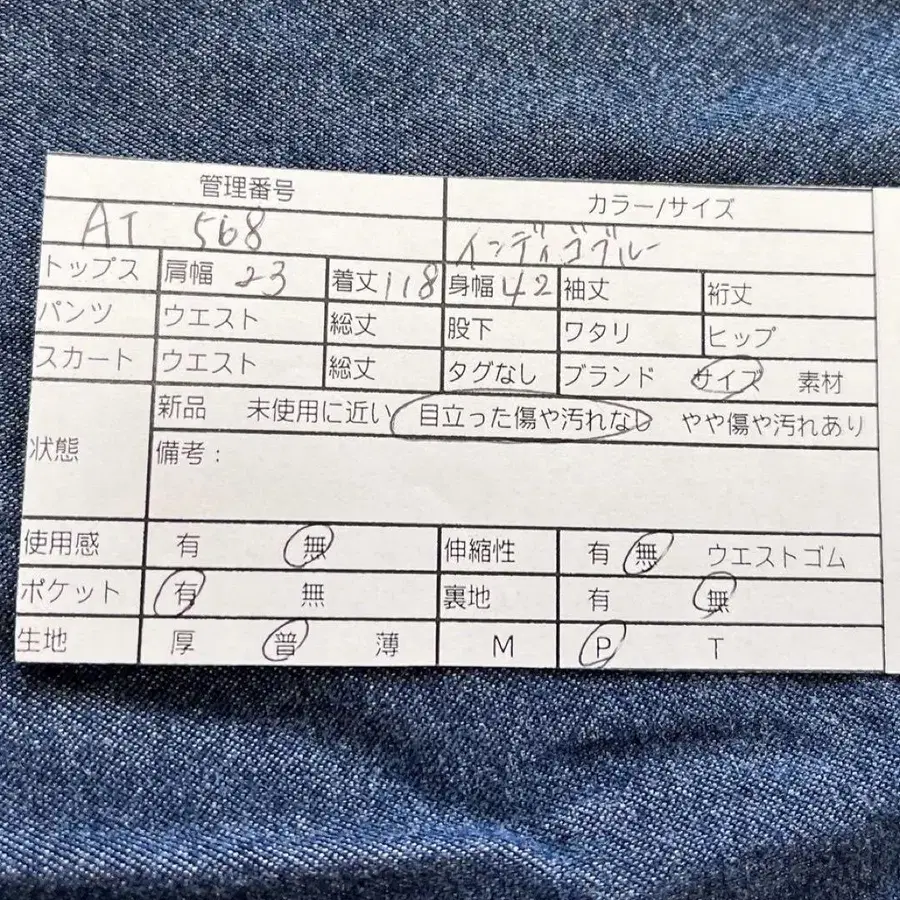 管理番号 カラー/サイズ
AT 568 インディゴブルー
トップス 肩幅 23 着丈 118 身幅 42 袖丈 裄丈
パンツ ウエスト 総丈 股下 ワタリ ヒップ
スカート ウエスト 総丈 タグなし ブランド サイズ 素材
状態 新品 未使用に近い 目立った傷や汚れなし やや傷や汚れあり
備考:
使用感 有 無 伸縮性 有 無 ウエストゴム
ポケット 有 無 裏地 有 無
生地 厚 普 薄 M P T